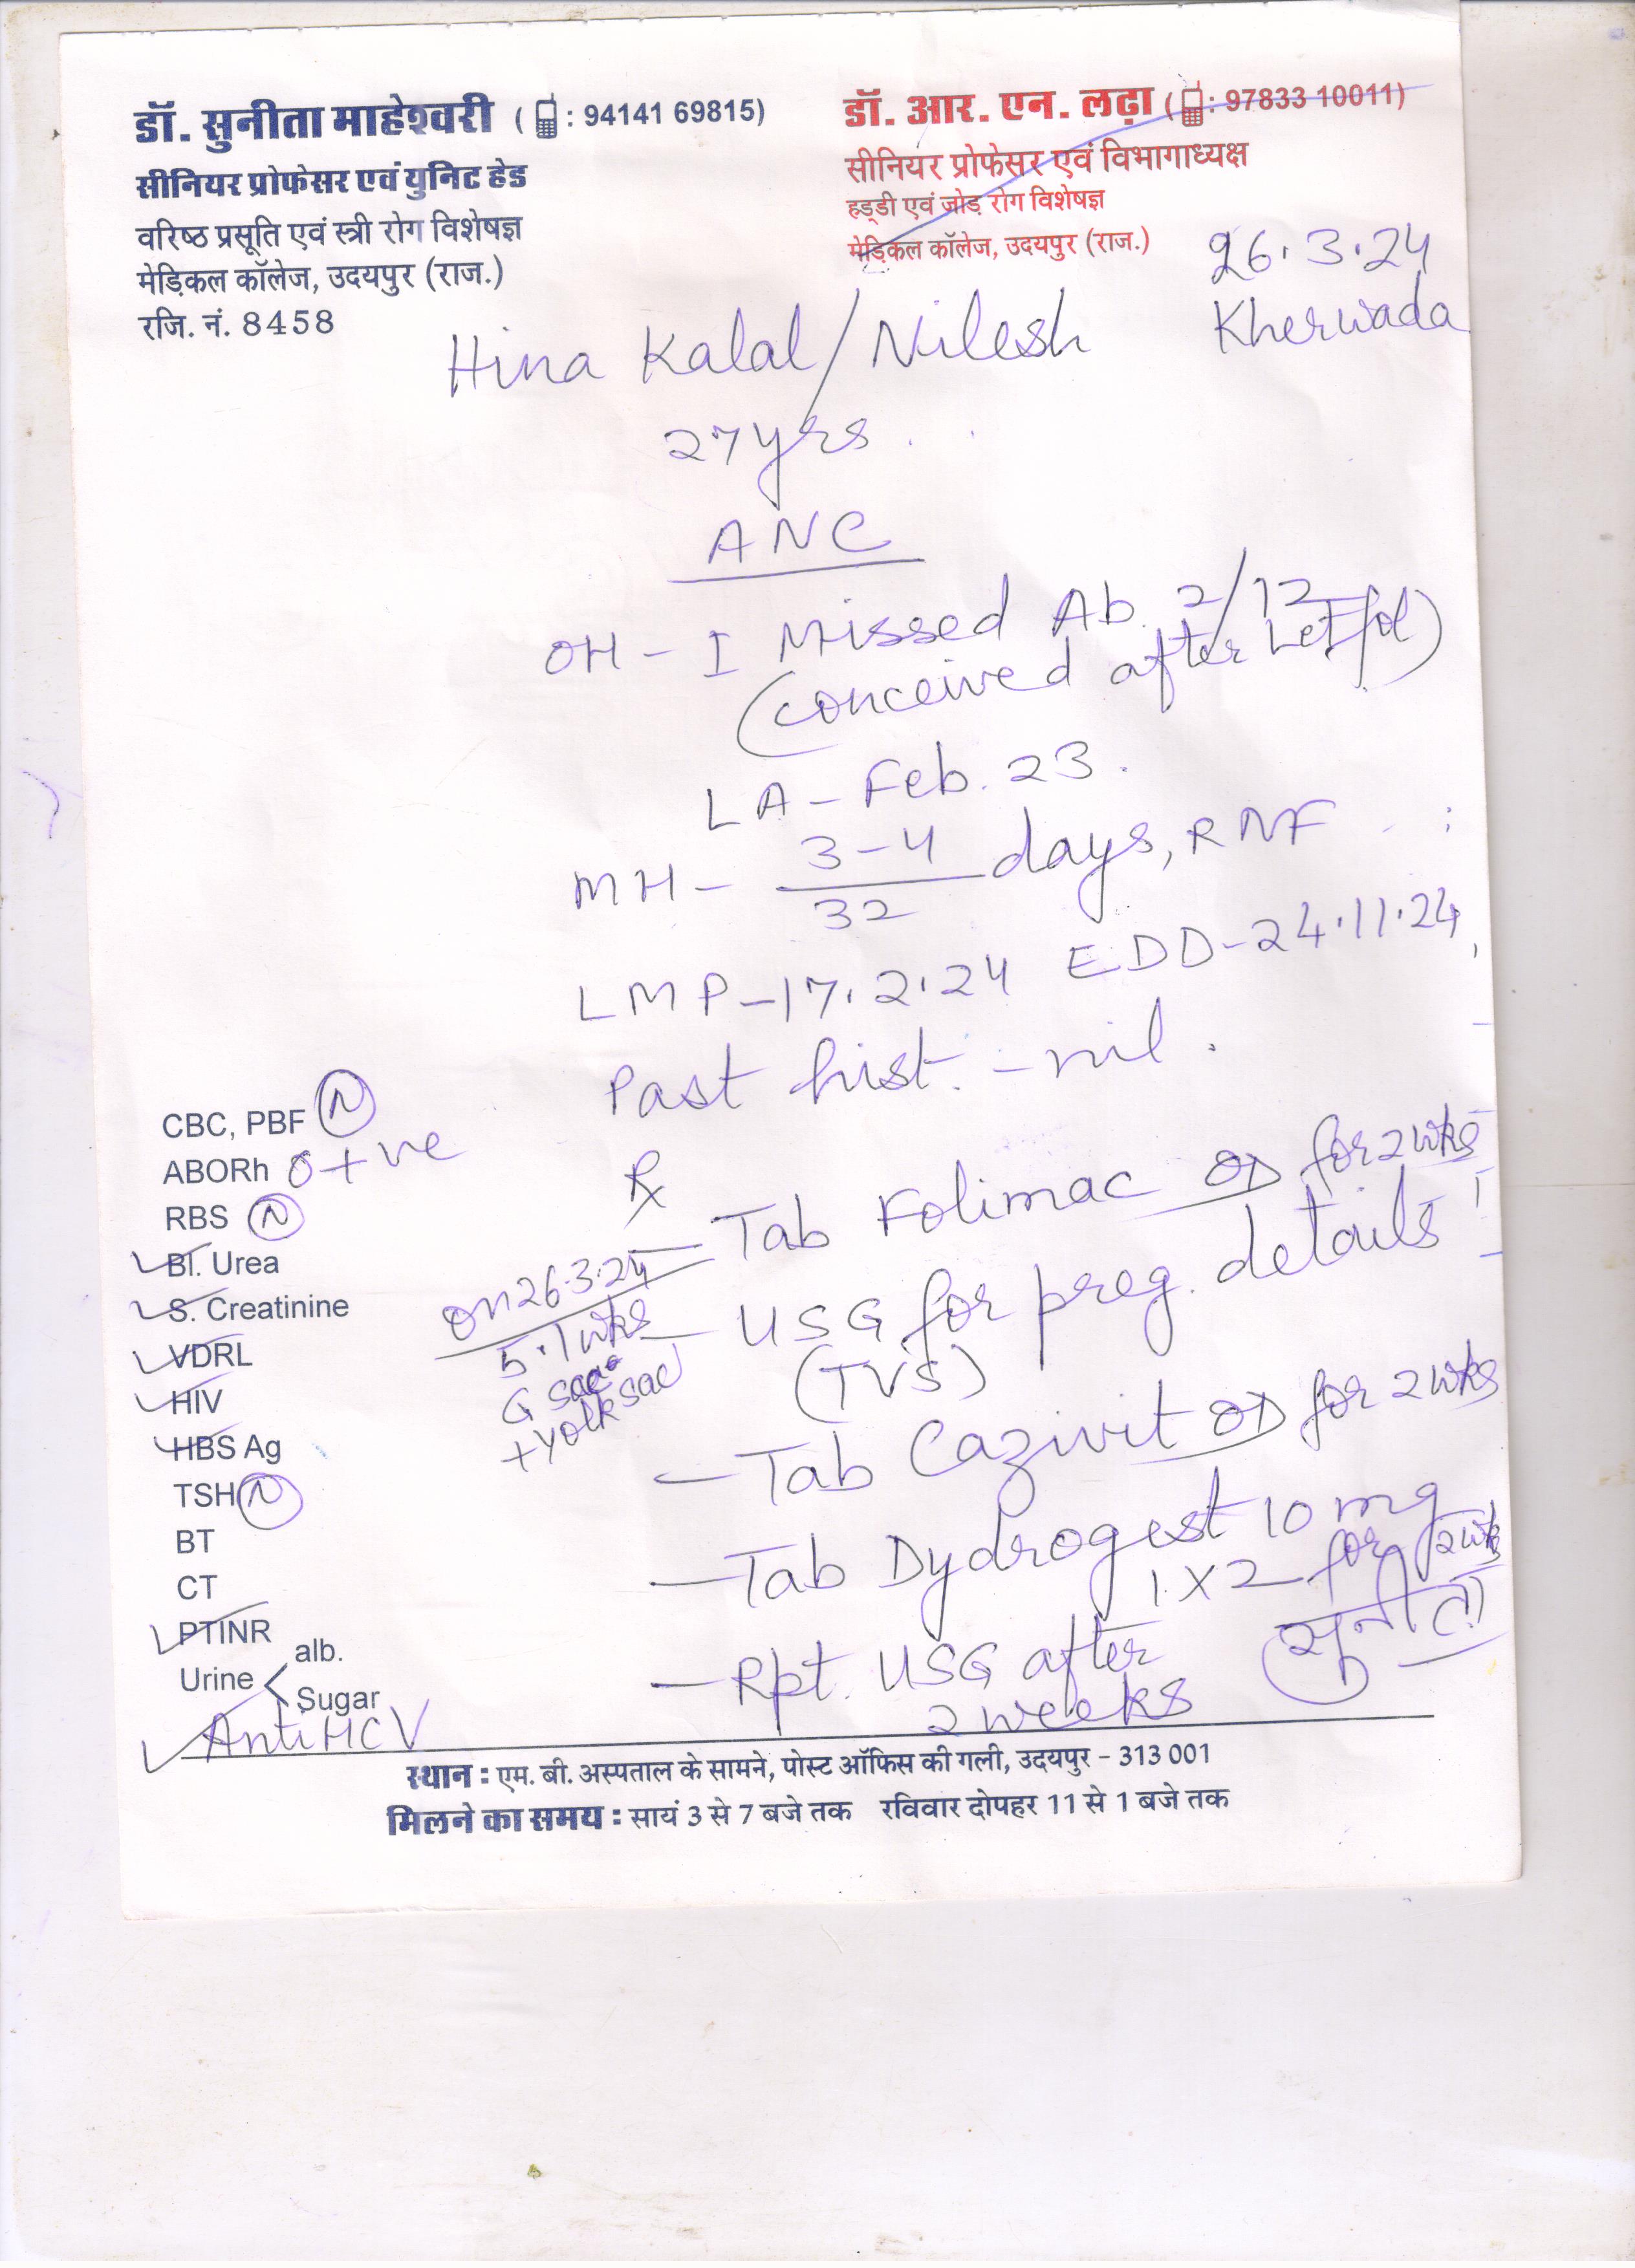 डॉ. सुनीता माहेश्वरी ( : 94141 69815)
सीनियर प्रोफेसर एवं युनिट हेड
वरिष्ठ प्रसूति एवं स्त्री रोग विशेषज्ञ
मेड़िकल कॉलेज, उदयपुर (राज.)
रजि. नं. 8458
डॉ. आर. एन. लढ़ा ( : 97833 10011)
सीनियर प्रोफेसर एवं विभागाध्यक्ष
हड्डी एवं जोड़ रोग विशेषज्ञ
मेड़िकल कॉलेज, उदयपुर (राज.)
26.3.24
Kherwada
Hina Kalal/Nilesh
27 yrs.
ANC
OH - I Missed Ab. 2/12
(conceived after Let/fol)
LA - Feb. 23.
MH - 3-4 days, RNF
32
LMP - 17.2.24 EDD - 24.11.24
Past hist. - nil.
CBC, PBF N
ABORh O+ve
RBS N
Bl. Urea
S. Creatinine
VDRL
HIV
HBS Ag
TSH N
BT
CT
PTINR
Urine < alb.
Sugar
Anti HCV
on 26.3.24
5.1 wks
G sac
+ yolk sac
Rx
- Tab Folimac OD for 2 wks
- USG for preg. details
(TVS)
- Tab Cazivit OD for 2 wks
- Tab Dydrogest 10 mg
1 x 2 for 2 wks
- Rpt. USG after
2 weeks
सुनीता
स्थान : एम. बी. अस्पताल के सामने, पोस्ट ऑफिस की गली, उदयपुर - 313 001
मिलने का समय : सायं 3 से 7 बजे तक रविवार दोपहर 11 से 1 बजे तक